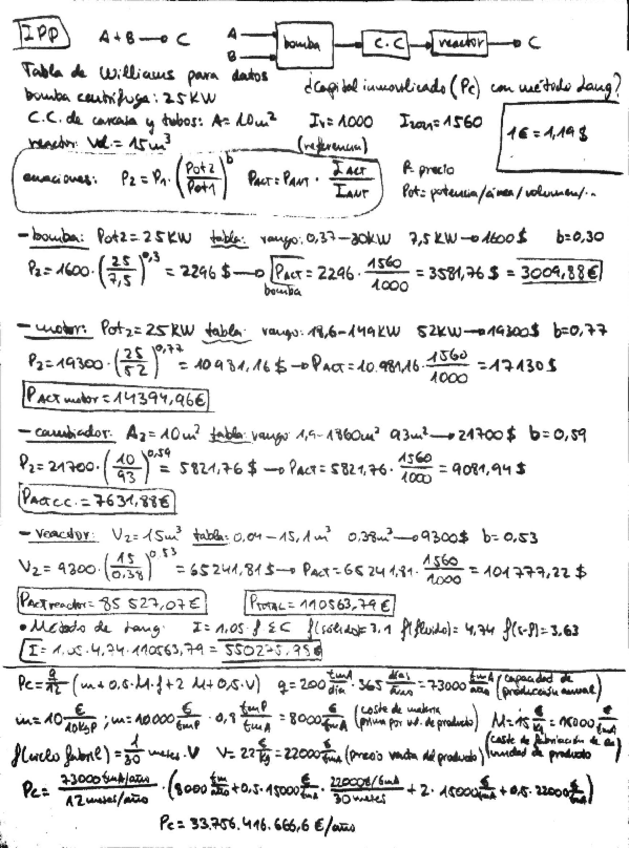 IPP A + B → C A → B → bomba → C.C → reactor → C
Tabla de Williams para datos ¿Capital inmovilizado (Pc) con método Lang?
bomba centrífuga: 25 KW
C.C. de carcasa y tubos: A = 10 m² I₁ = 1000 I₂₀₀₁ = 1560 1€ = 1,19 $
reactor: Vol. = 15 m³ (referencia)
ecuaciones: P₂ = P₁ · (Pot2/Pot1)^b PACT = PANT · IACT/IANT P = precio
Pot = potencia/área/volumen/...
- bomba: Pot2 = 25 KW tabla: rango: 0,37-30KW 7,5 KW → 1600 $ b = 0,30
P₂ = 1600 · (25/7,5)^0,3 = 2296 $ → PACT bomba = 2296 · 1560/1000 = 3581,76 $ = 3009,88 €
- motor: Pot₂ = 25 KW tabla: rango: 18,6-149KW 52KW → 19300 $ b = 0,77
P₂ = 19300 · (25/52)^0,77 = 10981,16 $ → PACT = 10.981,16 · 1560/1000 = 17130 $
PACT motor = 14394,96 €
- cambiador: A₂ = 10 m² tabla: rango: 1,9-1860 m² 93 m² → 21700 $ b = 0,59
P₂ = 21700 · (10/93)^0,59 = 5821,76 $ → PACT = 5821,76 · 1560/1000 = 9081,94 $
PACT C.C. = 7631,88 €
- reactor: V₂ = 15 m³ tabla: 0,04-15,1 m³ 0,38 m³ → 9300 $ b = 0,53
V₂ = 9300 · (15/0,38)^0,53 = 65241,81 $ → PACT = 65241,81 · 1560/1000 = 101777,22 $
PACT reactor = 85527,07 € PTOTAL = 110563,79 €
• Método de Lang: I = 1,05 · f ΣC f(sólido) = 3,1 f(fluido) = 4,74 f(s-f) = 3,63
I = 1,05 · 4,74 · 110563,79 = 550275,95 €
Pc = q/12 (m + 0,5 · M · f + 2 M + 0,5 · V) q = 200 tmA/día · 365 días/año = 73000 tmA/año (capacidad de producción anual)
m = 10 €/10KgP ; m = 10000 €/tmP · 0,8 tmP/tmA = 8000 €/tmA (coste de materia prima por ud. de producto) M = 15 €/kg = 15000 €/tmA
f (ciclo fabril) = 1/30 meses · V V = 22 €/kg = 22000 €/tmA (precio venta del producto) (coste de fabricación de la unidad de producto)
Pc = 73000 tmA/año / 12 meses/año · (8000 €/tmA + 0,5 · 15000 €/tmA · 22000 €/tmA / 30 meses + 2 · 15000 €/tmA + 0,5 · 22000 €/tmA)
Pc = 33.756.416.666,6 €/año